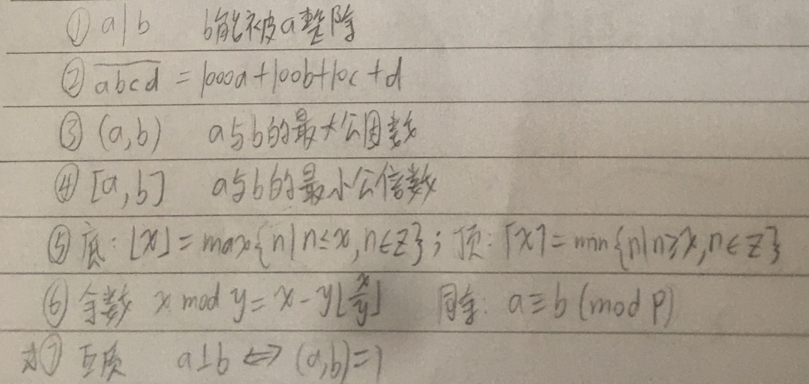 ① a|b b能被a整除
② \overline{abcd} = 1000a+100b+10c+d
③ (a,b) a与b的最大公因数
④ [a,b] a与b的最小公倍数
⑤ 底: ⌊x⌋ = max{n|n≤x,n∈Z}; 顶: ⌈x⌉ = min{n|n≥x,n∈Z}
⑥ 余数 x mod y = x - y⌊x/y⌋ 同余: a≡b (mod P)
⑦ 互质 a⊥b ⟺ (a,b)=1